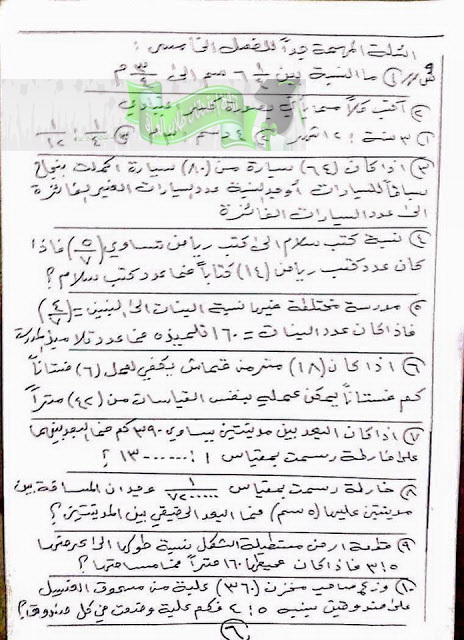 الاسئلة المهمة جداً للفصل الخامس :
① ما النسبة بين ١/٤ ٦ سم الى ٣/٤ م
② أكتب كلاً مما يأتي بصورة
① ٣ سنة : ١٢ شهر ② ٤ دسم : ③ ١/٤ : ١/١٢
③ اذا كان (٦٤) سيارة من (٨٠) سيارة اكملت بنجاح
سباقاً للسيارات أوجد نسبة عدد السيارات الغير الفائزة
الى عدد السيارات الفائزة
④ نسبة كتب سلام الى كتب رياض تساوي (٥/٧) فاذا
كان عدد كتب رياض (١٤) كتاباً فما عدد كتب سلام ؟
⑤ مدرسة مختلطة فيها نسبة البنات الى البنين = (٤/٧)
فاذا كان عدد البنات = ١٦٠ تلميذه فما عدد تلاميذ المدرسة
⑥ اذا كان (١٨) متر من قماش يكفي لعمل (٦) فستاناً
كم فستاناً يمكن عمله بنفس القياسات من (٤٢) متراً
⑦ اذا كان البعد بين مدينتين يساوي ٣٩٠ كم فما البعد بينهما
على خارطة رسمت بمقياس ١ : ١٣٠٠٠٠٠٠ ؟
⑧ خارطة رسمت بمقياس ١/٧٢٠٠٠٠٠ وجد ان المسافة بين
مدينتين عليها (٥ سم) فما البعد الحقيقي بين المدينتين ؟
⑨ قطعة ارض مستطيلة الشكل نسبة طولها الى عرضها
٥ : ٣ فاذا كان محيطها ١٦٠ متراً فما مساحتها ؟
⑩ وزع صاحب مخزن (٣٦٠) علبة من مسحوق الغسيل
على صندوقين بنسبة ٥ : ٢ فكم علبة وضعت في كل صندوق ؟